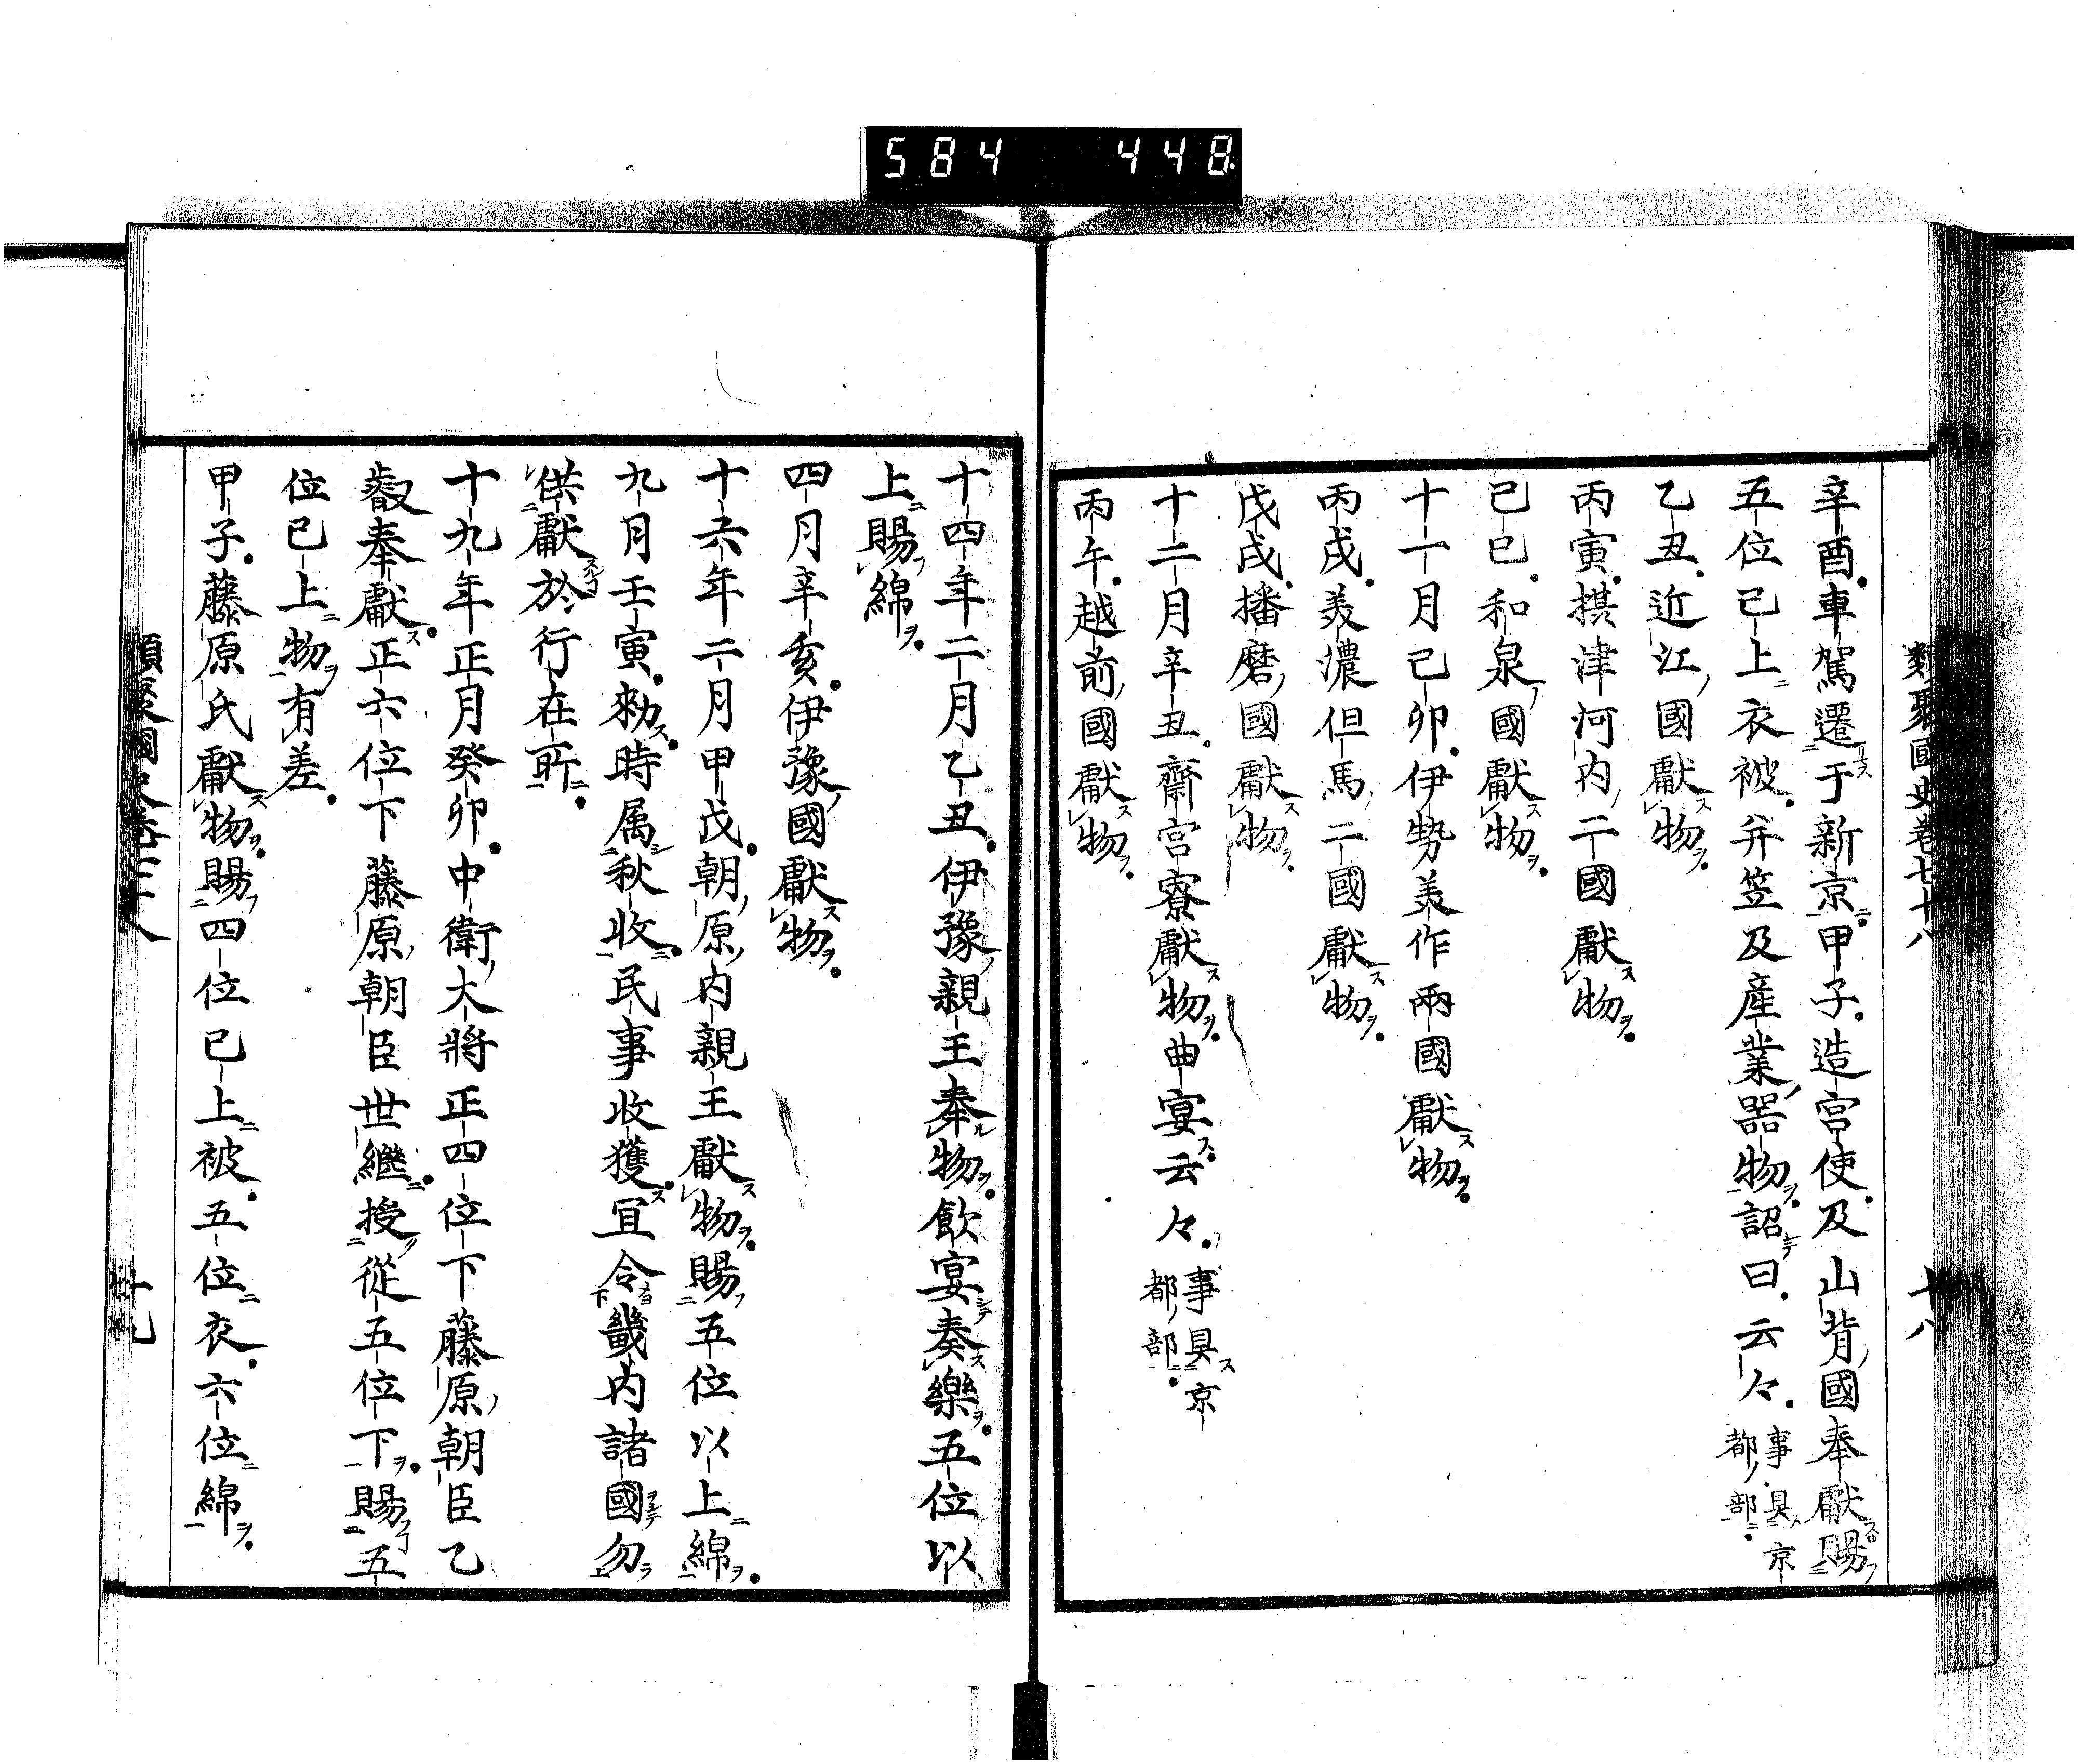 584 448
類聚國史卷七十八
十八
辛酉車駕遷于新京甲子造宮使及山背國奉獻賜
五位已上衣被并笠及産業器物詔曰云々事具京都部
乙丑近江國獻物
丙寅摂津河内二國獻物
己巳和泉國獻物
十一月己卯伊勢美作兩國獻物
丙戌美濃但馬二國獻物
戊戌播磨國獻物
十二月辛丑齋宮寮獻物曲宴云々事具京都部
丙午越前國獻物
十四年二月乙丑伊豫親王奉物飲宴奏樂五位以
上賜綿
四月辛亥伊豫國獻物
十六年二月甲戌朝原内親王獻物賜五位以上綿
九月壬寅勑時属秋收民事收獲宜令畿内諸國勿
供獻於行在所
十九年正月癸卯中衛大將正四位下藤原朝臣乙
叡奉獻正六位下藤原朝臣世繼授從五位下賜五
位已上物有差
甲子藤原氏獻物賜四位已上被五位衣六位綿
類聚國史卷七十八
十九